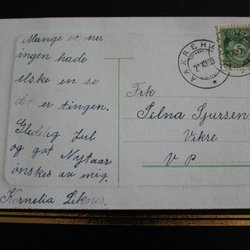 Mange venner
ingen hade
elske en so
det er tingen.
Gledelig Jul
og got Nytaar
ønskes av mig.
Kornelia Liknes.
AAKREHE
Frk
Selna Sjursen
Vikre
V P